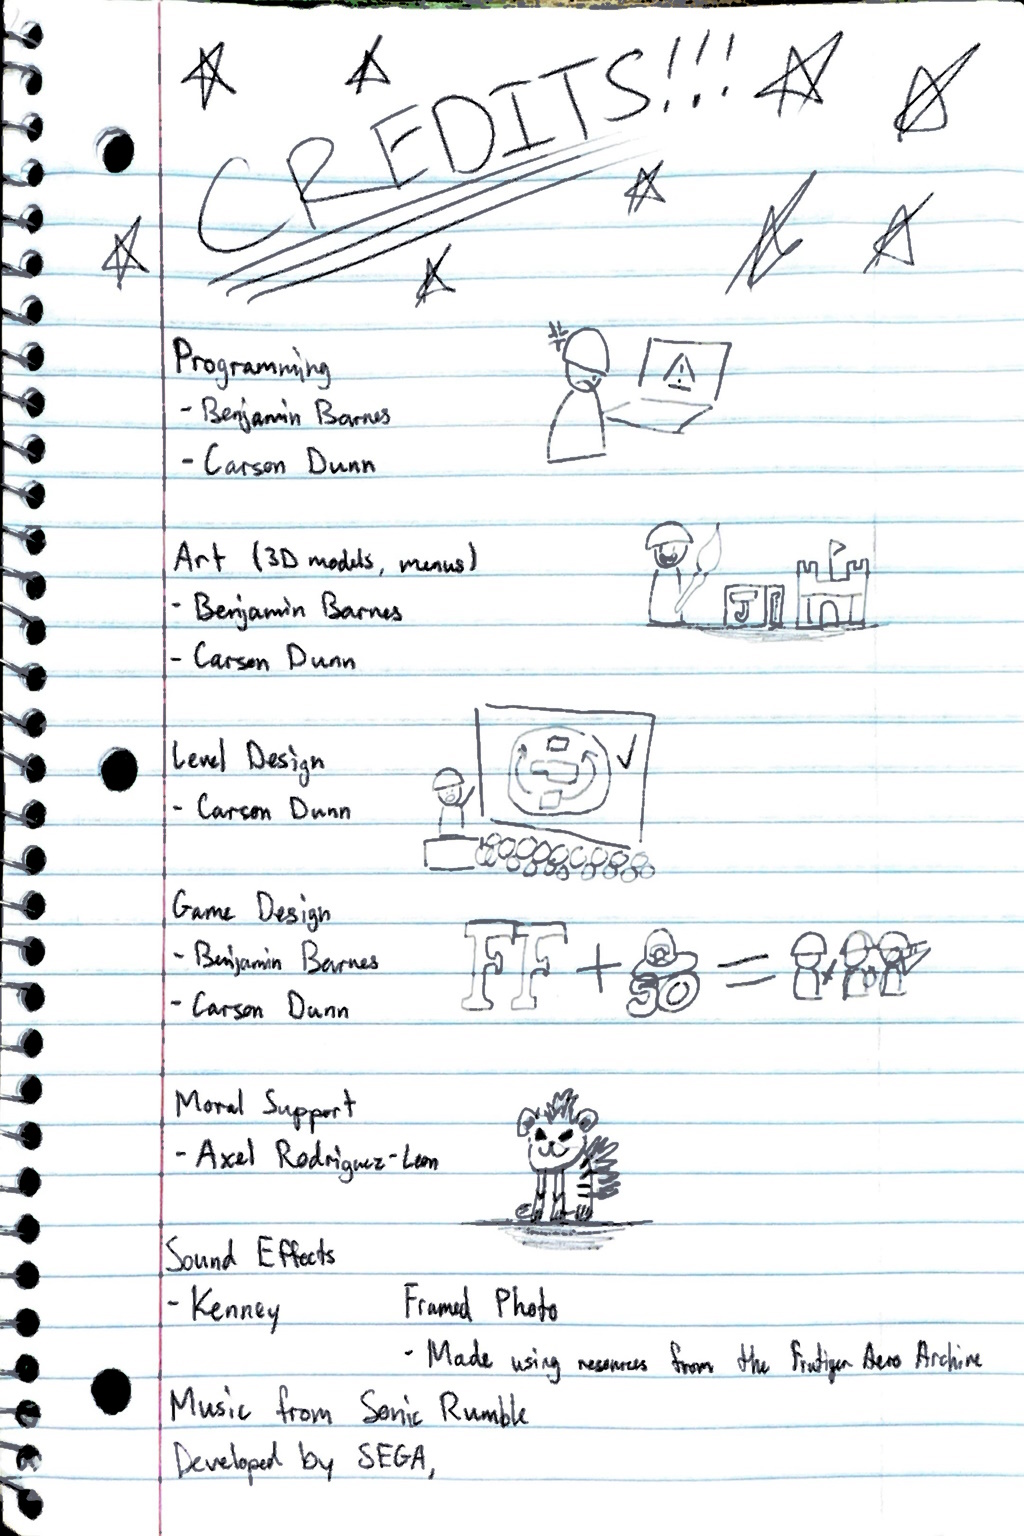 CREDITS!!!
Programming
- Benjamin Barnes
- Carson Dunn
Art (3D models, menus)
- Benjamin Barnes
- Carson Dunn
Level Design
- Carson Dunn
Game Design
- Benjamin Barnes
- Carson Dunn
FF + 50 =
Moral Support
- Axel Rodriguez-Leon
Sound Effects
- Kenney
Framed Photo
- Made using resources from the Frutiger Aero Archive
Music from Sonic Rumble
Developed by SEGA,